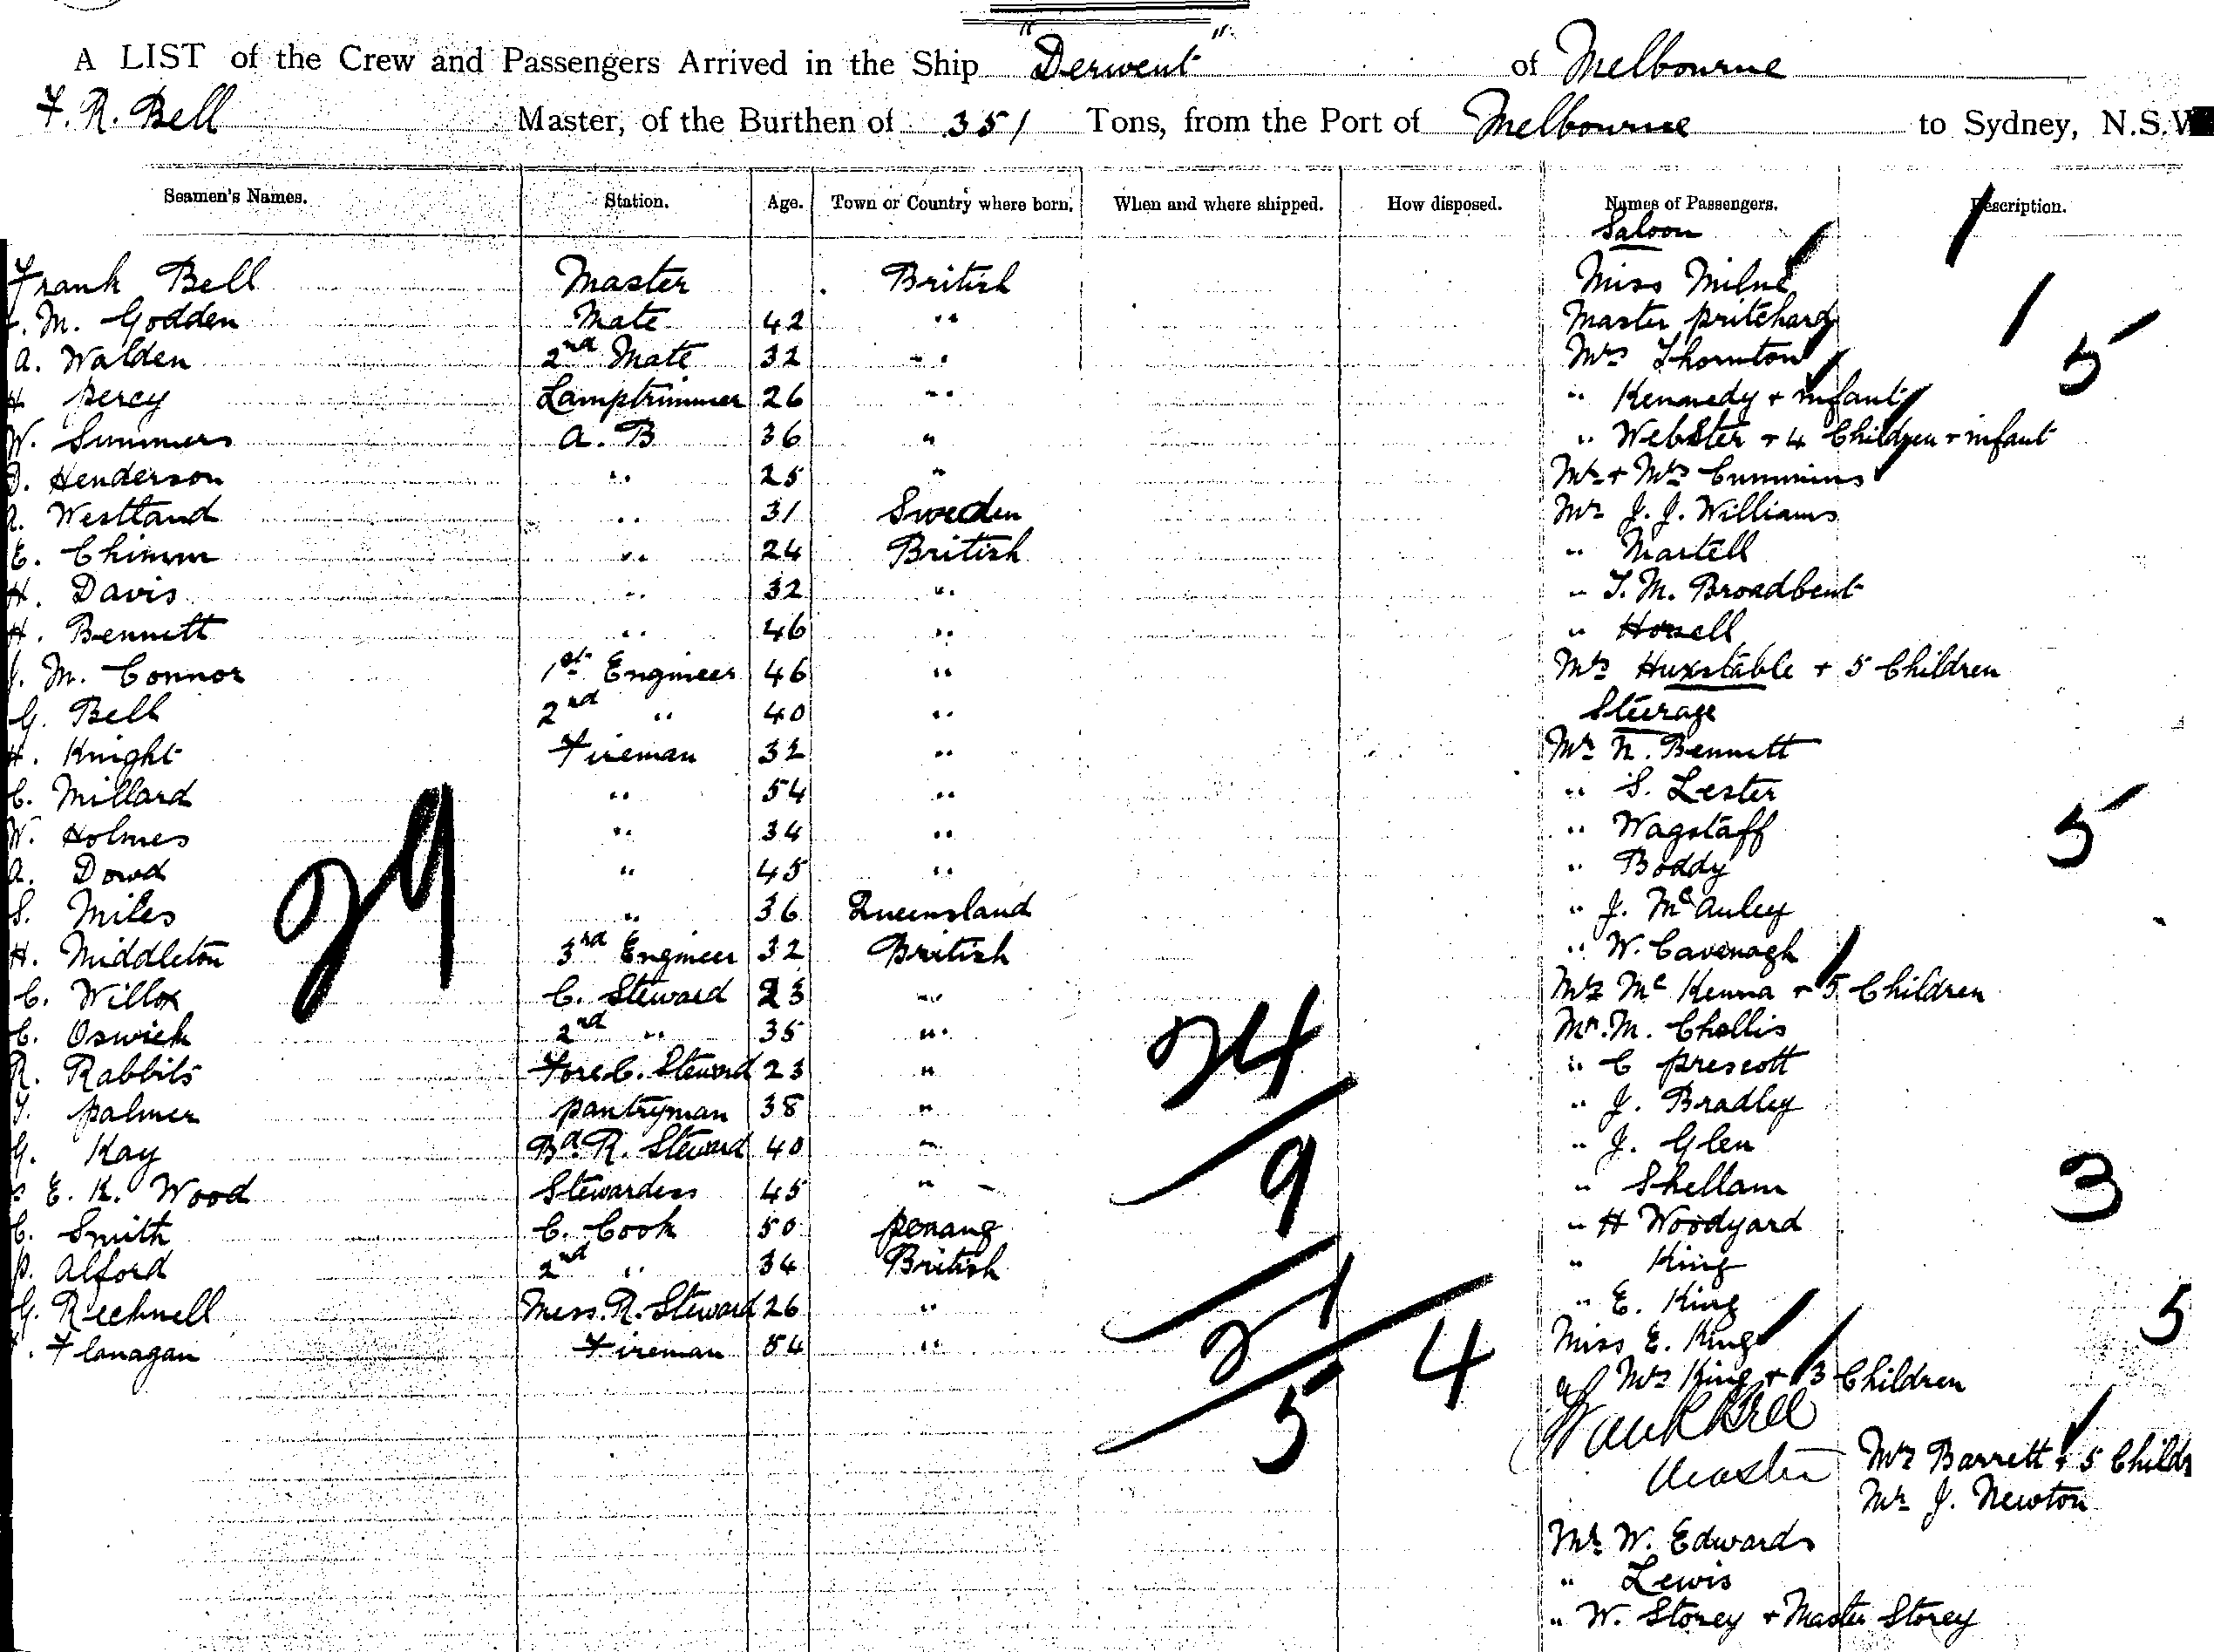 A LIST of the Crew and Passengers Arrived in the Ship "Derwent" of Melbourne
F. R. Bell Master, of the Burthen of 351 Tons, from the Port of Melbourne to Sydney, N.S.W
Seamen's Names. Station. Age. Town or Country where born. When and where shipped. How disposed. Names of Passengers. Description.
Saloon
Frank Bell Master British Miss Milne
M. Godden Mate 42 " Master Pritchard
A. Walden 2nd Mate 32 " Mrs Thornton 5
H Percy Lamptrimmer 26 " " Kennedy + infant
W. Summers A. B 36 " " Webster + 4 Children + infant
Henderson " 25 " Mr + Mrs Cummins
Westland " 31 Sweden Mr J. J. Williams
E. " 24 British " Martell
H. Davis " 32 " " T. M. Broadbent
H. Bennett " 46 " " Horsell
J. M. Connor 1st Engineer 46 " Mrs Huxstable + 5 Children
G. Bell 2nd " 40 " Steerage
H. Knight Fireman 32 " Mr N. Bennett
C. Millard " 54 " " S. Lester
W. Holmes " 34 " " Wagstaff 5
A. Dowd " 45 " " Boddy
S. Miles " 36 Queensland " J. McAuley
29
H. Middleton 3rd Engineer 32 British " W. Cavenagh
C. Willox C. Steward 23 " Mrs McKenna + 5 Children
C. Oswick 2nd " 35 " Mr. M. Chollis
24
R. Rabbits Fore C. Steward 23 " " C Prescott
Palmer Pantryman 38 " " J. Bradley
G. Kay Bd R. Steward 40 " " J. Glen
9
E. K. Wood Stewardess 45 " " Shellam 3
C. Smith C. Cook 50 Penang " H Woodyard
P. Alford 2nd " 34 British " King
G. Mess. R. Steward 26 " " E. King 5
21
Flanagan Fireman 54 " Miss E. King
4
Mrs King + 3 Children
5
Master Mrs Barrett + 5 Childr
Mr J. Newton
Mr W. Edwards
" Lewis
" W. Storey + Master Storey